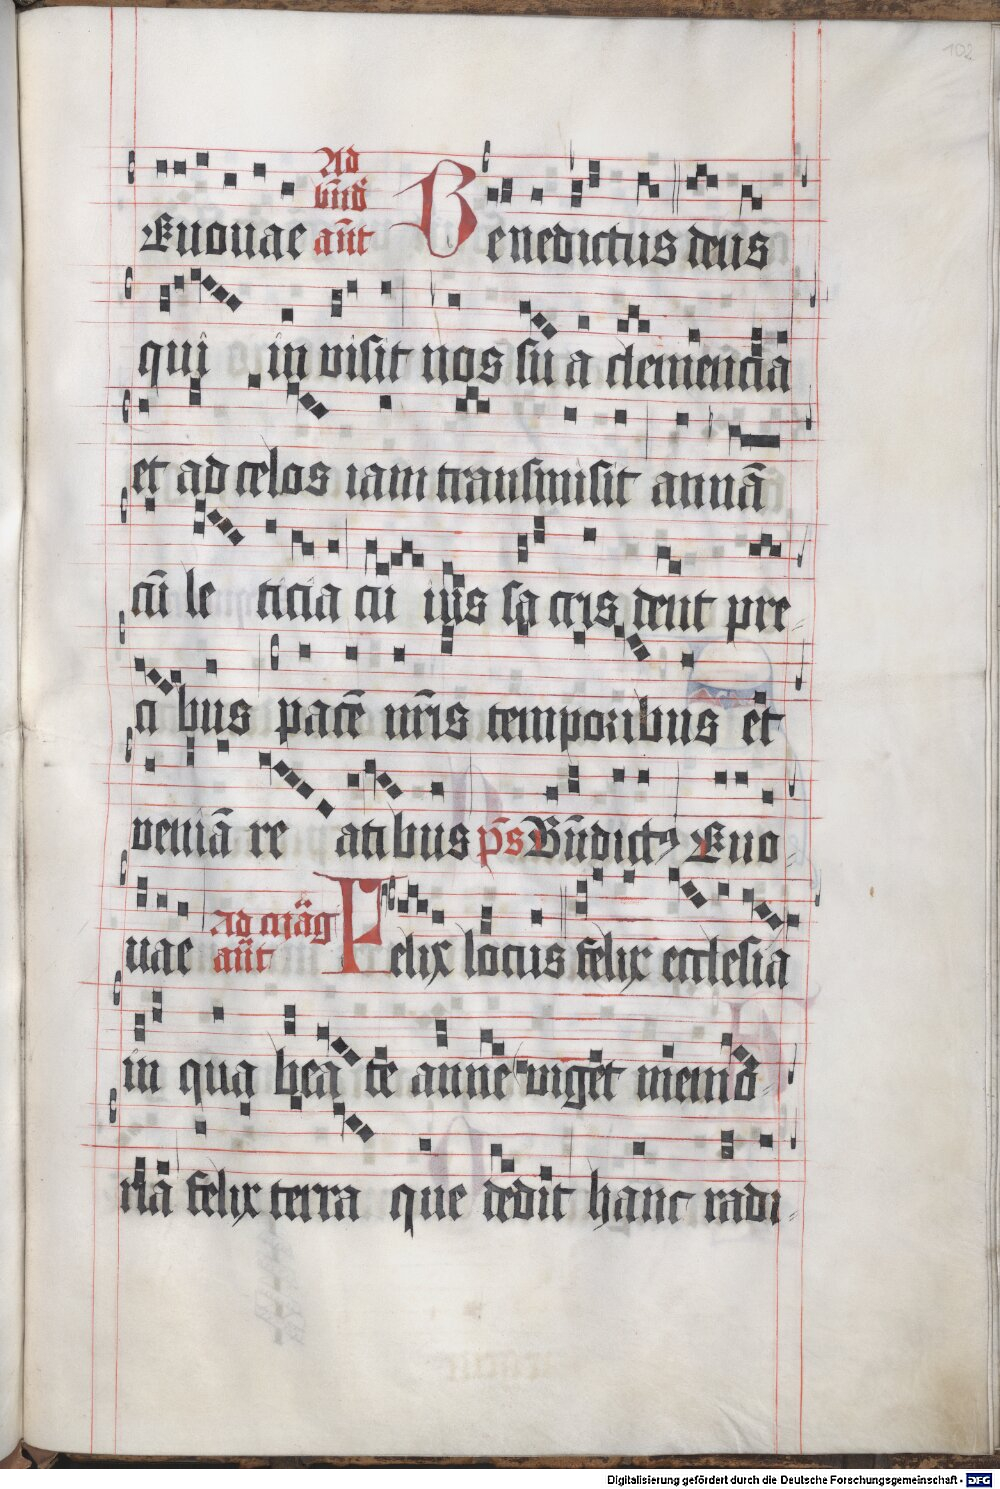 102
Euouae Ad bn̄d añt Benedictus deus
qui in visit nos su a clemencia
et ad celos iam transmisit annā
cū le ticia cu ius sa cris dent pre
ci bus pacē nr̄is temporibus et
veniā re atibus ps̄ Bn̄dictꝰ Euo
uae Ad māg añt Felix locus felix ecclesia
in qua bea te anne viget memo
ria felix terra que dedit hanc radi
Digitalisierung gefördert durch die Deutsche Forschungsgemeinschaft - DFG